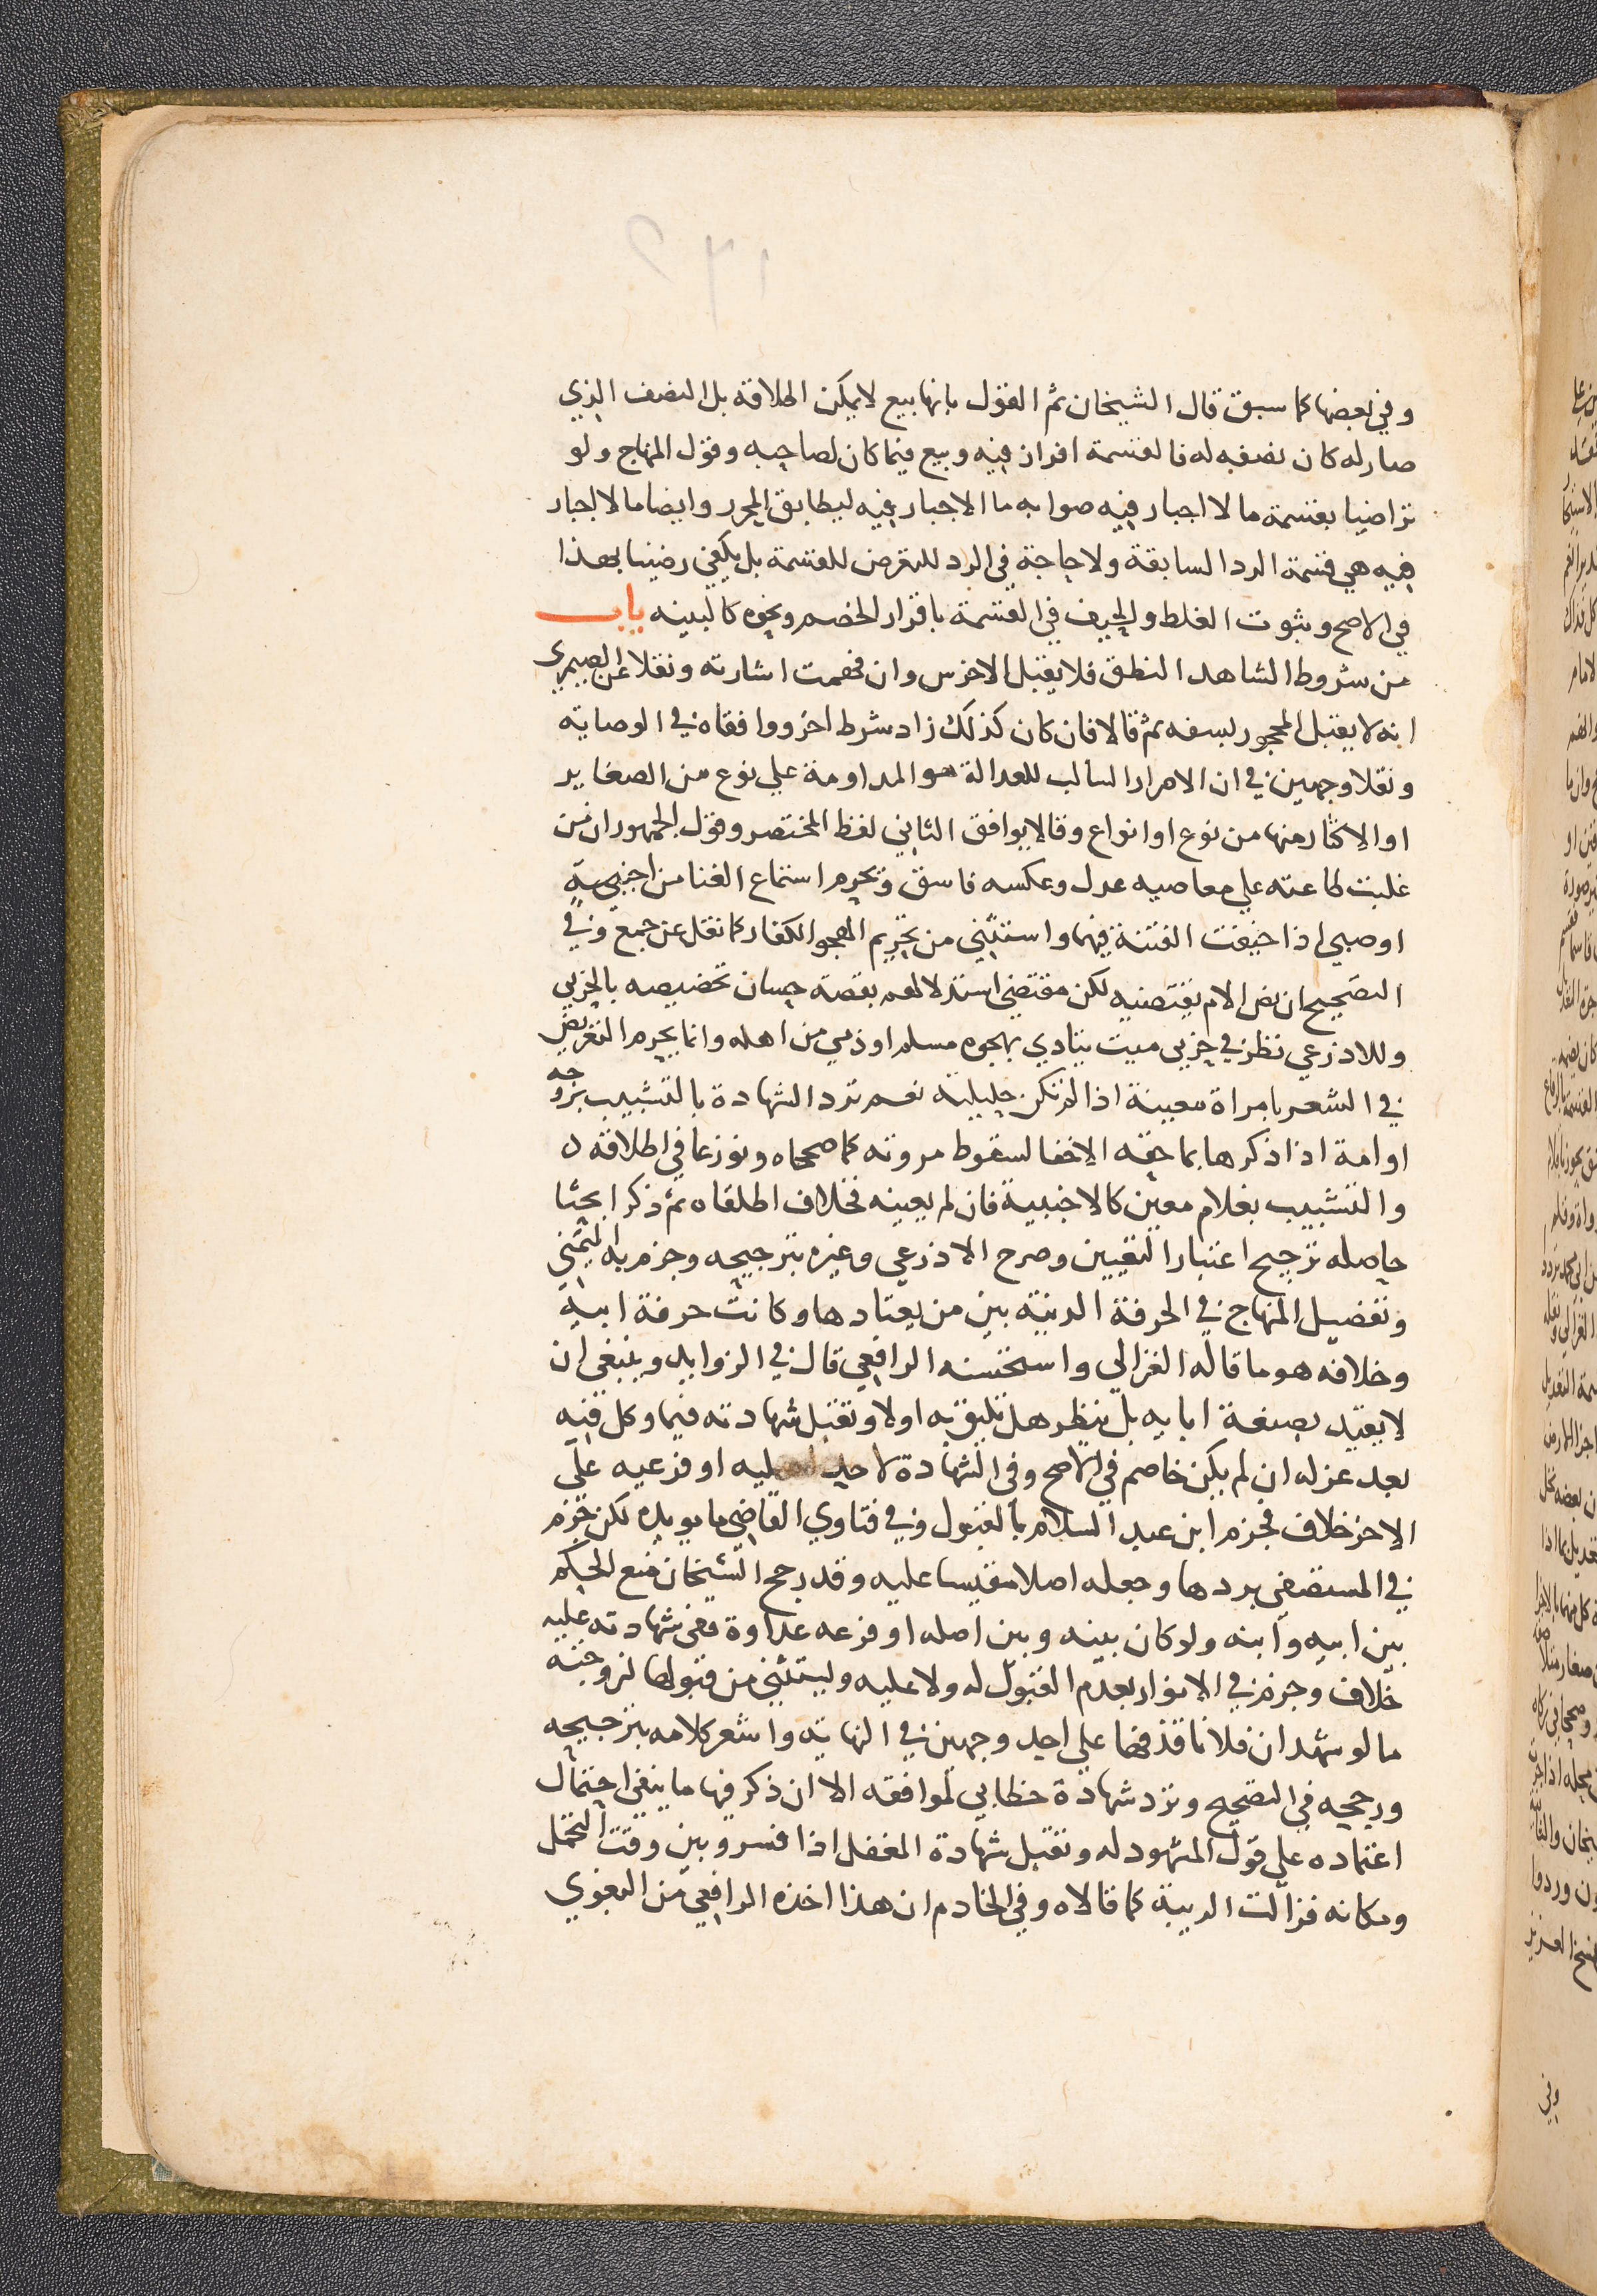 وفي بعضها كما سبق قال الشيخان ثم القول بانها بيع لا يمكن اطلاقه بل النصف الذي
صار له كان نصفه له فالقسمة افراز فيه وبيع فيما كان لصاحبه وقول المنهاج ولو
تراضيا بقسمة ما لا اجبار فيه صوابه ما الاجبار فيه ليطابق المحرر وايضا ما لا اجبار
فيه هي قسمة الرد السابقة ولا حاجة في الرد للتعرض للقسمة بل يكفي رضينا بهذا
في الاصح وثبوت الغلط والحيف في القسمة باقرار الخصم ونحوه كالبينه باب
من شروط الشاهد النطق فلا يقبل الاخرس وان فهمت اشارته ونقلا عن الصيمري
انه لا يقبل المحجور بسفه ثم قالا فان كان كذلك زاد شرط اخر ووافقاه في الوصاية
ونقلا وجهين في ان الاصرار السالب للعدالة هو المداومة علي نوع من الصغاير
او الاكثار منها من نوع او انواع وقالا يوافق الثاني لفظ المختصر وقول الجمهور ان من
غلبت طاعته علي معاصيه عدل وعكسه فاسق ويحرم استماع الغنا من اجنبية
او صبي اذا خيفت الفتنة فيهما واستثني من تحريم الهجو الكفار كما نقل عن جمع وفي
التصحيح ان نص الام يقتضيه لكن مقتضي استدلالهم بقصة حسان تخصيصه بالحربي
وللاذرعي نظر في حربي ميت يتاذي بهجوه مسلم او ذمي من اهله وانما يحرم التعريض
في الشعر بامراة معينة اذا لم تكن حليلته نعم ترد الشهادة بالتشبيب بزوجه
او امة اذا ذكرها بما حقه الاخفا لسقوط مروته كما صححاه ونوزعا في اطلاقه
والتشبيب بغلام معين كالاجنبية فان لم يعينه فخلاف اطلقاه ثم ذكرا بحثا
حاصله ترجيح اعتبار التعيين وصرح الاذرعي وغيره بترجيحه وجزم به اليمني
وتفصيل المنهاج في الحرفة الدنية بين من يعتادها وكانت حرفة ابيه
وخلافه هو ما قاله الغزالي واستحسنه الرافعي قال في الزوايد وينبغي ان
لا يقيد بصنعة ابايه بل ينظر هل تليق به اولا وتقبل شهادته فيما وكل فيه
بعد عزله ان لم يكن خاصم في الاصح وفي الشهادة لاحد اصليه او فرعيه علي
الاخر خلاف فجزم ابن عبد السلام بالقبول وفي فتاوي القاضي ما يويده لكن جزم
في المستصفي بردها وجعله اصلا مقيسا عليه وقد رجح الشيخان منع الحكم
بين ابيه وابنه ولو كان بينه وبين اصله او فرعه عداوة ففي شهادته عليه
خلاف وجزم في الانوار بعدم القبول له ولا عليه ويستثني من قبولها لزوجته
ما لو شهد ان فلانا قذفها علي احد وجهين في النهاية واشعر كلامه بترجيحه
ورجحه في التصحيح وترد شهادة خطابي لموافقه الا ان ذكر فيها ما ينفي احتمال
اعتماده علي قول المشهود له وتقبل شهادة المغفل اذا فسر وبين وقت التحمل
ومكانه فزالت الريبة كما قالاه وفي الخادم ان هذا اخذه الرافعي من البغوي